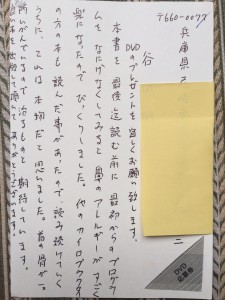 〒660-0077
兵庫県
DVDのプレゼントを宜しくお願い致します。
谷
本書を最後迄読む前に最初からのプログラ
ムをなにげなくしてみると鼻のアレルギーがすごく
楽になったのでびっくりしました。他のカイロプラクタ
の方の本も読んだ事があったので、読み続けていく
うちに、これは本物だと思いました。首の骨が一
治るものと期待しています。
ありがとうございます。
DVD
応募券